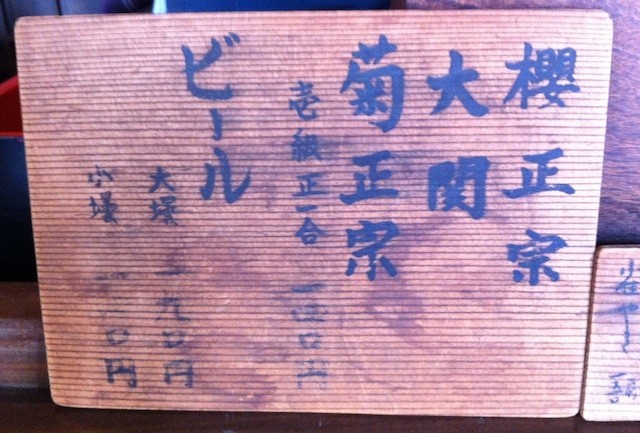 櫻正宗
大関
菊正宗
壱級正一合 一四〇円
ビール
大壜 一九〇円
小壜